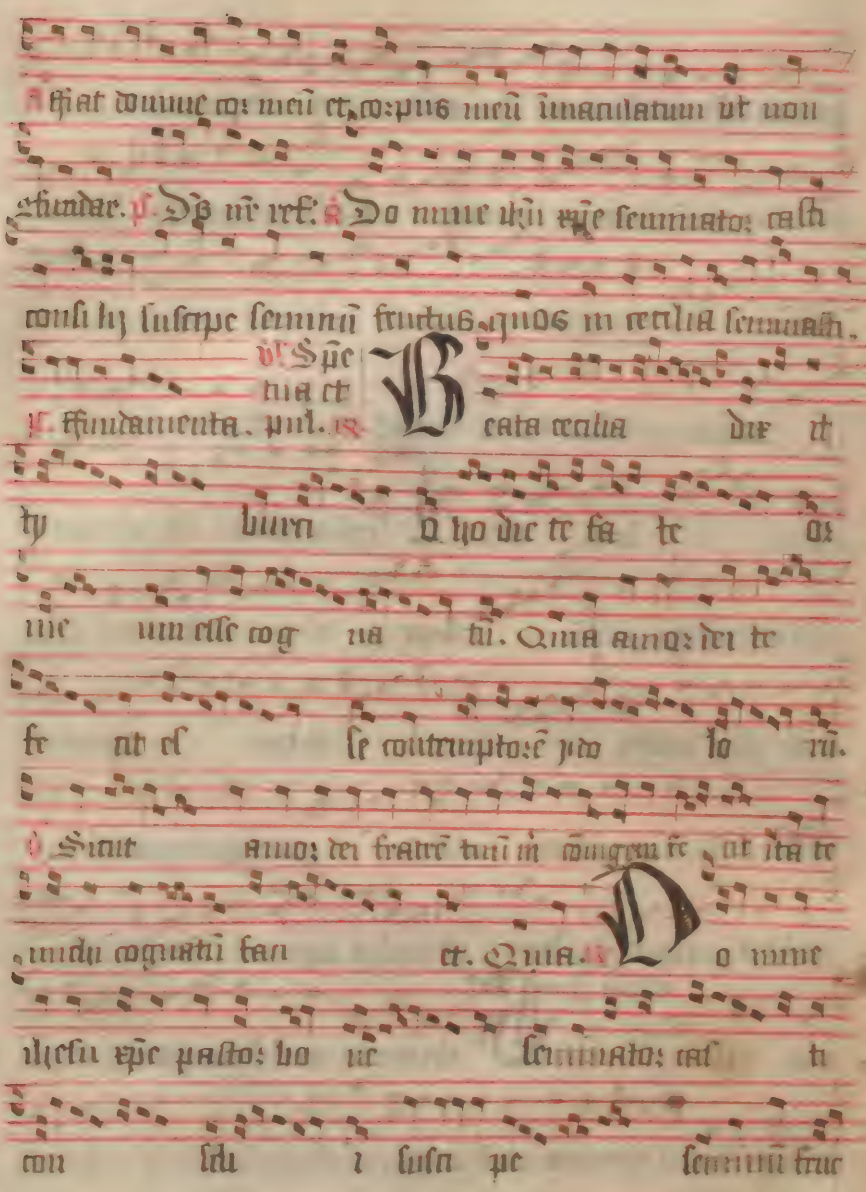 A ffiat domine cor meū et corpus meū īmaculatum ut non
ɔfundar. ps. Dñs nr̄ ref. A Do mine ihū xp̄e seminator casti
consi lij suscipe seminū fructus quos in cecilia seminasti.
v̄. Sp̄e
tua et
ps. ffundamenta. pul. R. B eata cecilia dix it
ty burci o ho die te fa te or
me um esse cog na tū. Quia amor dei te
fe cit es se contemptorē ydo lo rū.
v̄. Sicut amor dei fratrē tuū m̄ cōiugem fe cit ita te
michi cognatū faci et. Quia. R. D o mine
ihesu xp̄e pastor bo ne seminator cas ti
con sili i susci pe seminū fruc